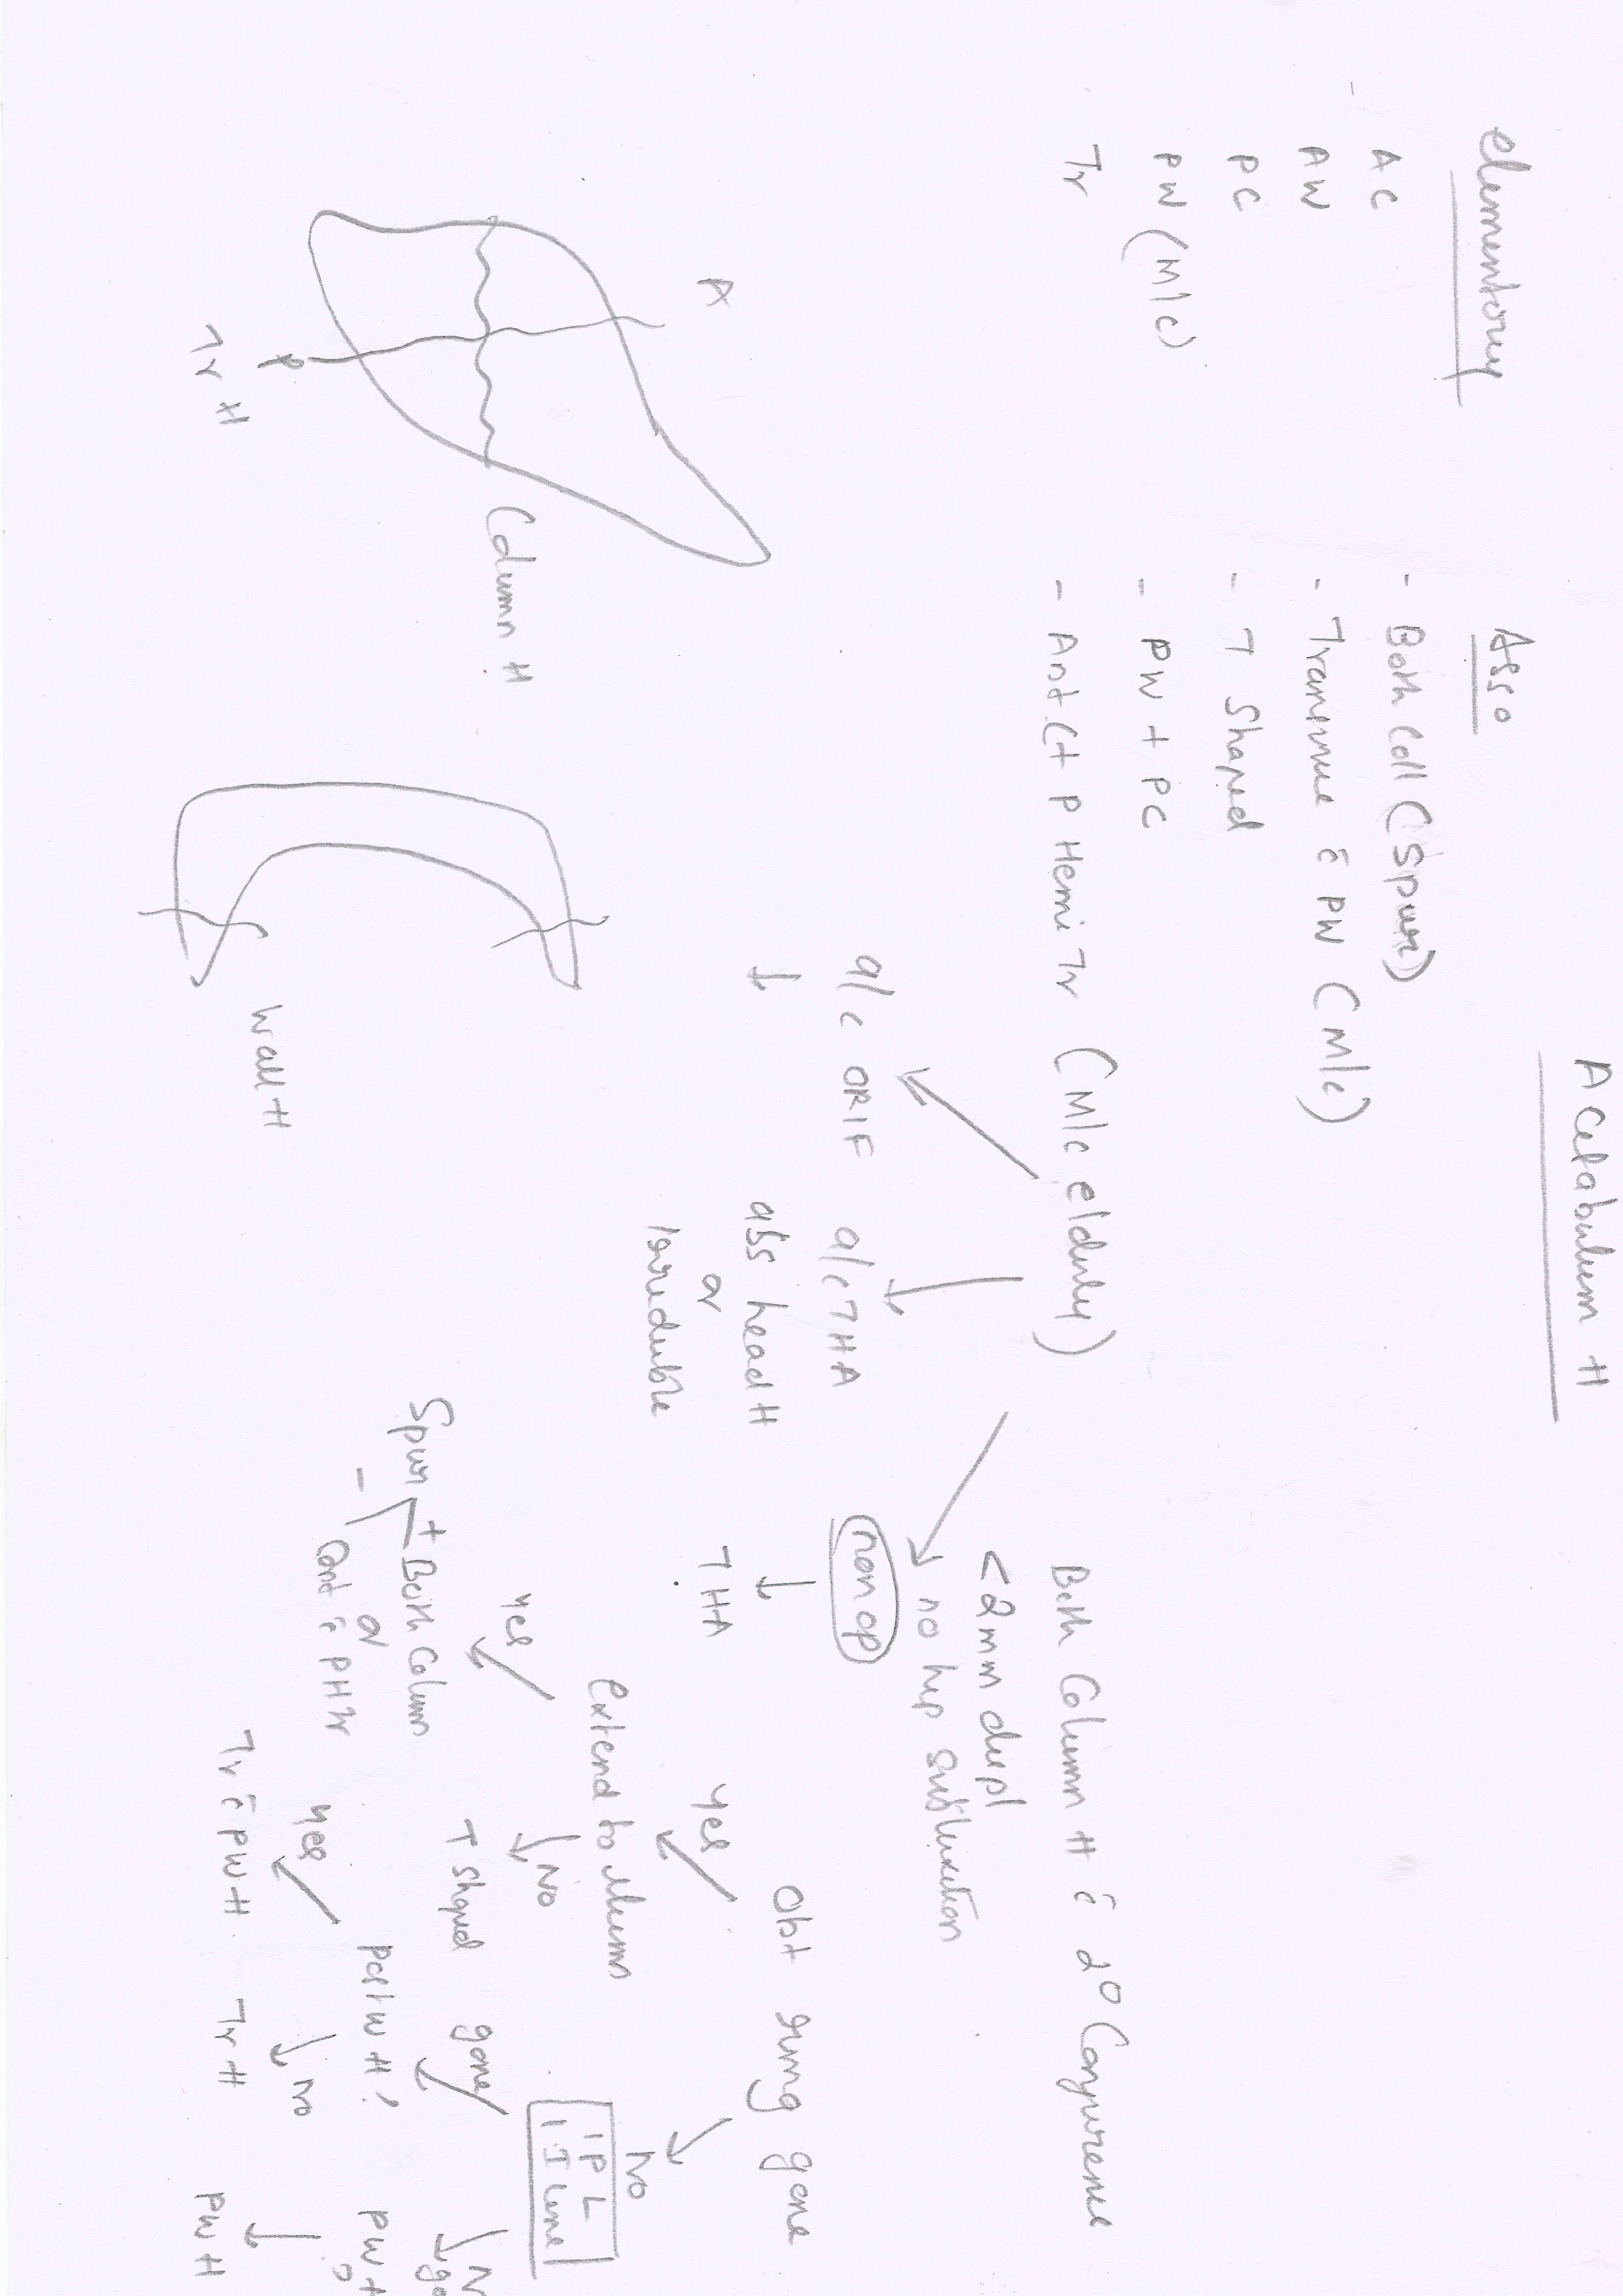 Acetabulum #
elementory
AC
AW
PC
PW (M/c)
Tr
Asso
- Both Coll (Spur)
- Tranverse c̄ PW (M/c)
- T Shaped
- PW + PC
- Ant C + P Hemi Tr (M/c elderly)
a/c ORIF
↓
a/c THA
abs head #
or
Irreducible
Both Column # c̄ 2° Congruence
<2mm displ
no hip subluxation
non op
↓
THA
A
P
Tr #
Column #
Wall #
Obt ring gone
Yes
No
Extend to ilium
Yes
No
T Shaped
Spur
+ Both Column
-
or
Ant c̄ PHTr
IPL
I I line
gone
Post W # ?
Yes
No
Tr c̄ PW #
Tr #
PW +
PW #